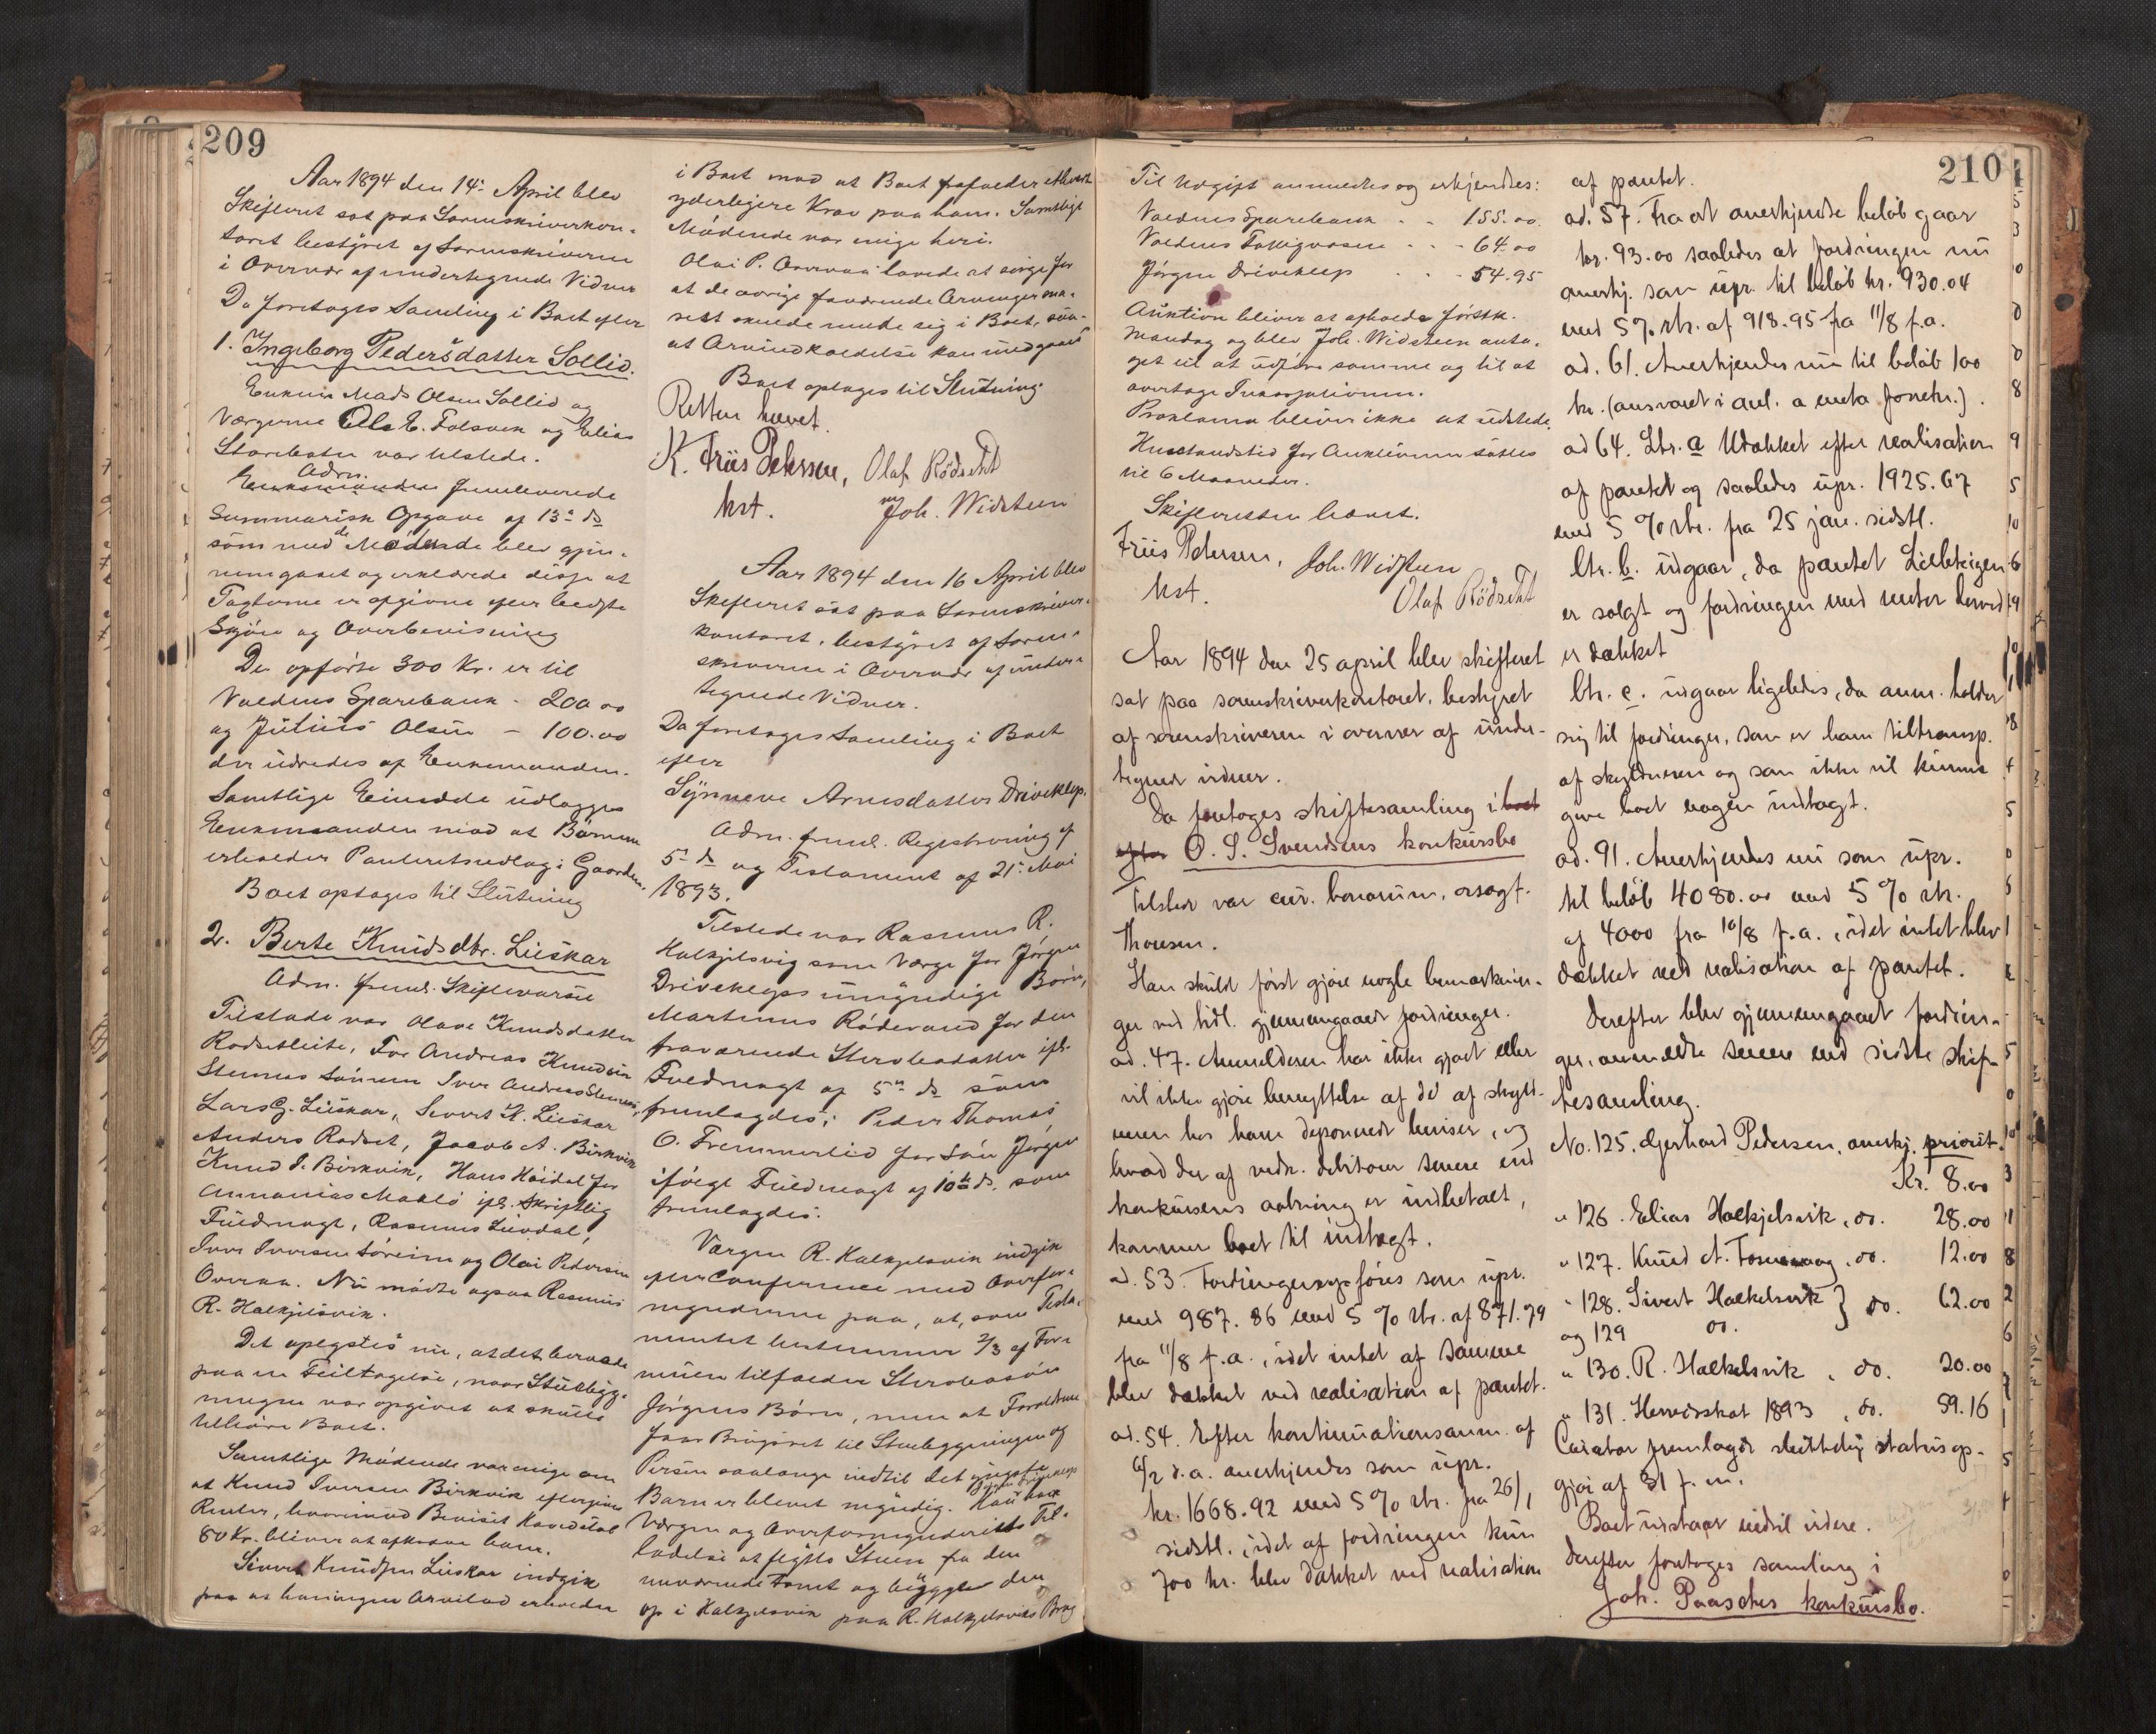 209
Aar 1894 den 14de April blev
Skifteret sat paa Sorenskriverkon-
toret bestyret af Sorenskriveren
i Overvær af undertegnede Vidner
Da foretoges Samling i Boet efter
1. Ingeborg Pedersdatter Sollid.
Enkem. Mads Olsen Sollid og
Værgerne Ole E. Folsvik og Elias
Storebotn var tilstede.
Adm.
Enkemanden fremleverede
Summarisk Opgave af 13de ds
som med de Mødende blev gjen-
nemgaaet og erklærede disse at
Taxterne er opgivne efter bedste
Skjøn og Overbevisning
De opførte 300 Kr. er til
Voldens Sparebank - 200 00
og Julius Olsen - 100.00
der udredes af Enkemanden.
Samtlige Eiendele udlægges
Enkemanden mod at Børnene
erholder Panteretsudlæg i Gaarden.
Boet optages til Slutning
2. Berte Knudsdtr. Lieskar
Adm. freml. Skiftevarsel
Tilstede var Olave Knudsdatter
Rodsetleite, For Andreas Knudsen
Stennes Sønnen Iver Andreas Stennes,
Lars G. Lieskar, Sivert K. Lieskar
Anders Rodset, Jacob A. Birkvik
Knud I. Birkvik, Hans Høidal for
Annanias Maalø ifl. Skriftlig
Fuldmagt, Rasmus Liendal,
Iver Iversen Søreim og Olai Pedersen
Overaa. Nu mødte ogsaa Rasmus
R. Halkjelsvik.
Det oplystes nu, at det beroede
paa en Feiltagelse, naar Stuebyg-
ningen var opgivet at skulle
tilhøre Boet.
Samtlige Mødende var enige om
at Knud Iversen Birkvik eftergives
Renter, hvorimod Beviset Hovedstol
80 Kr. bliver at afkræve ham.
Sivert Knudsen Lieskar indgik
paa at han ingen Arvelod erholder
i Boet mod at Boet frafalder ethvert
yderligere Krav paa ham. Samtlige
Mødende var enige heri.
Olai P. Overaa lovede at sørge for
at de øvrige fraværende Arvinger sna-
rest skulde melde sig i Boet, saa-
at Arveindkaldelse kan undgaaes
Boet optages til Slutning.
Retten hævet.
K. Friis Petersen, Olaf Rödseth
kst. Joh. Widsteen
Aar 1894 den 16 April blev
Skifteret sat paa Sorenskriver-
kontoret, bestyret af Soren-
skriveren i Overvær af under-
tegnede Vidner.
Da foretoges Samling i Boet
efter
Synneve Arnesdatter Driveklep.
Adm. freml. Registrering af
5te ds og Testament af 21de Mai
1893.
Tilstede var Rasmus R.
Halkjelsvig som Værge for Jørgen
Drivekleps umyndige Børn,
Martinus Rødevand for den
fraværende Sterbodatter ifl.
Fuldmagt af 5te ds som
fremlagdes; Peder Thomas
O. Fremmerlid for Søn Jørgen
ifølge Fuldmagt af 10de ds. som
fremlagdes.
Værgen R. Halkjelsvik indgik
efter Conference med Overfor-
mynderne paa, at, som Testa-
mentet bestemmer 2/3 af For-
muen tilfalder Sterbosøn
Jørgens Børn, men at Forældrene
faar Brugsret til Stuebygningen og
Persen saalænge indtil det yngste
Barn er blevet myndig. Han har
Jørgen Driveklep
Værgen og Overformynderiets Til-
ladelse at flytte Stuen fra den
nuværende Tomt og bygge den
op i Halkjelsvik paa R. Halkjelsviks Brug
210
Til Udgift anmeldtes og erkjendtes:
Voldens Sparebank - - 155.00
Voldens Fattigvæsen - - - 64.00
Jørgen Driveklep - - - 54.95
Auktion bliver at afholde førstk.
Mandag og blev Joh. Widsteen anta-
get til at udføre samme og til at
overtage Inkassationen.
Proklama bliver ikke at udstede.
Henstandstid for Auktionen sattes
til 6 Maaneder.
Skifteretten hævet.
Friis Petersen, Joh. Widsteen
kst. Olaf Rödseth
Aar 1894 den 25 april blev skifteret
sat paa sorenskriverkontoret, bestyret
af sorenskriveren i overvær af under-
tegnede vidner.
Da foretoges skiftesamling i boet
efter O. S. Svendsens konkursbo
Tilstede var cur. bonorum, orsagf.
Thoresen.
Han skulde først gjøre nogle bemærknin-
ger ved tidl. gjennemgaaede fordringer.
ad. 47. Anmelderen har ikke gjort eller
vil ikke gjøre benyttelse af de af skyld-
neren hos ham deponerede beviser, og
hvad der af vedk. debitorer senere end
konkursens aabning er indbetalt,
kommer boet til indtægt.
ad. 53. Fordringen opføres som upr.
med 987.86 med 5 % rtr. af 871.79
fra 11/8 f.a., idet intet af samme
blev dækket ved realisation af pantet.
ad. 54. Efter kontinuationsanm. af
6/2 d.a. anerkjendes som upr.
kr. 1668.92 med 5 % rtr. fra 26/1
sidstl., idet af fordringen kun
700 kr. blev dækket ved realisation
af pantet.
ad. 57. Fra det anerkjendte beløb gaar
kr. 93.00 saaledes at fordringen nu
anerkj. som upr. til beløb kr. 930.04
med 5 % rtr. af 918.95 fra 11/8 f.a.
ad. 61. Anerkjendes nu til beløb 100
kr. (ansvaret i anl. a meta forretn.).
ad 64. Ltr. a Udækket efter realisation
af pantet og saaledes upr. 1925.67
med 5 % rtr. fra 25 jan. sidstl.
ltr. b. udgaar, da pantet Lillebteigen
er solgt og fordringen med renter derved
er dækket
ltr. c. udgaar ligeledes, da anm. holder
sig til fordringer, som er ham tiltransp.
af skyldneren og som ikke vil kunne
give boet nogen indtægt.
ad. 91. Anerkjendes nu som upr.
til beløb 4080.00 med 5 % rtr.
af 4000 fra 10/8 f.a., idet intet blev
dækket ved realisation af pantet.
Derefter blev gjennemgaaet fordrin-
ger, anmeldte senere end sidste skif-
tesamling.
No. 125. Gerhard Pedersen, anerkj. priorit.
Kr. 8.00
" 126. Elias Halkjelsvik, do. 28.00
" 127. Knud A. , do. 12.00
" 128. Sivert Halkelsvik } do. 62.00
og 129 do.
" 130. R. Halkelsvik, do. 20.00
" 131. Herredsskat 1893, do. 59.16
Curator fremlagde sluttelig statusop-
gjør af 31 f. m.
Boet udstaar indtil videre.
Derefter foretoges samling i
Joh. Paasches konkursbo.